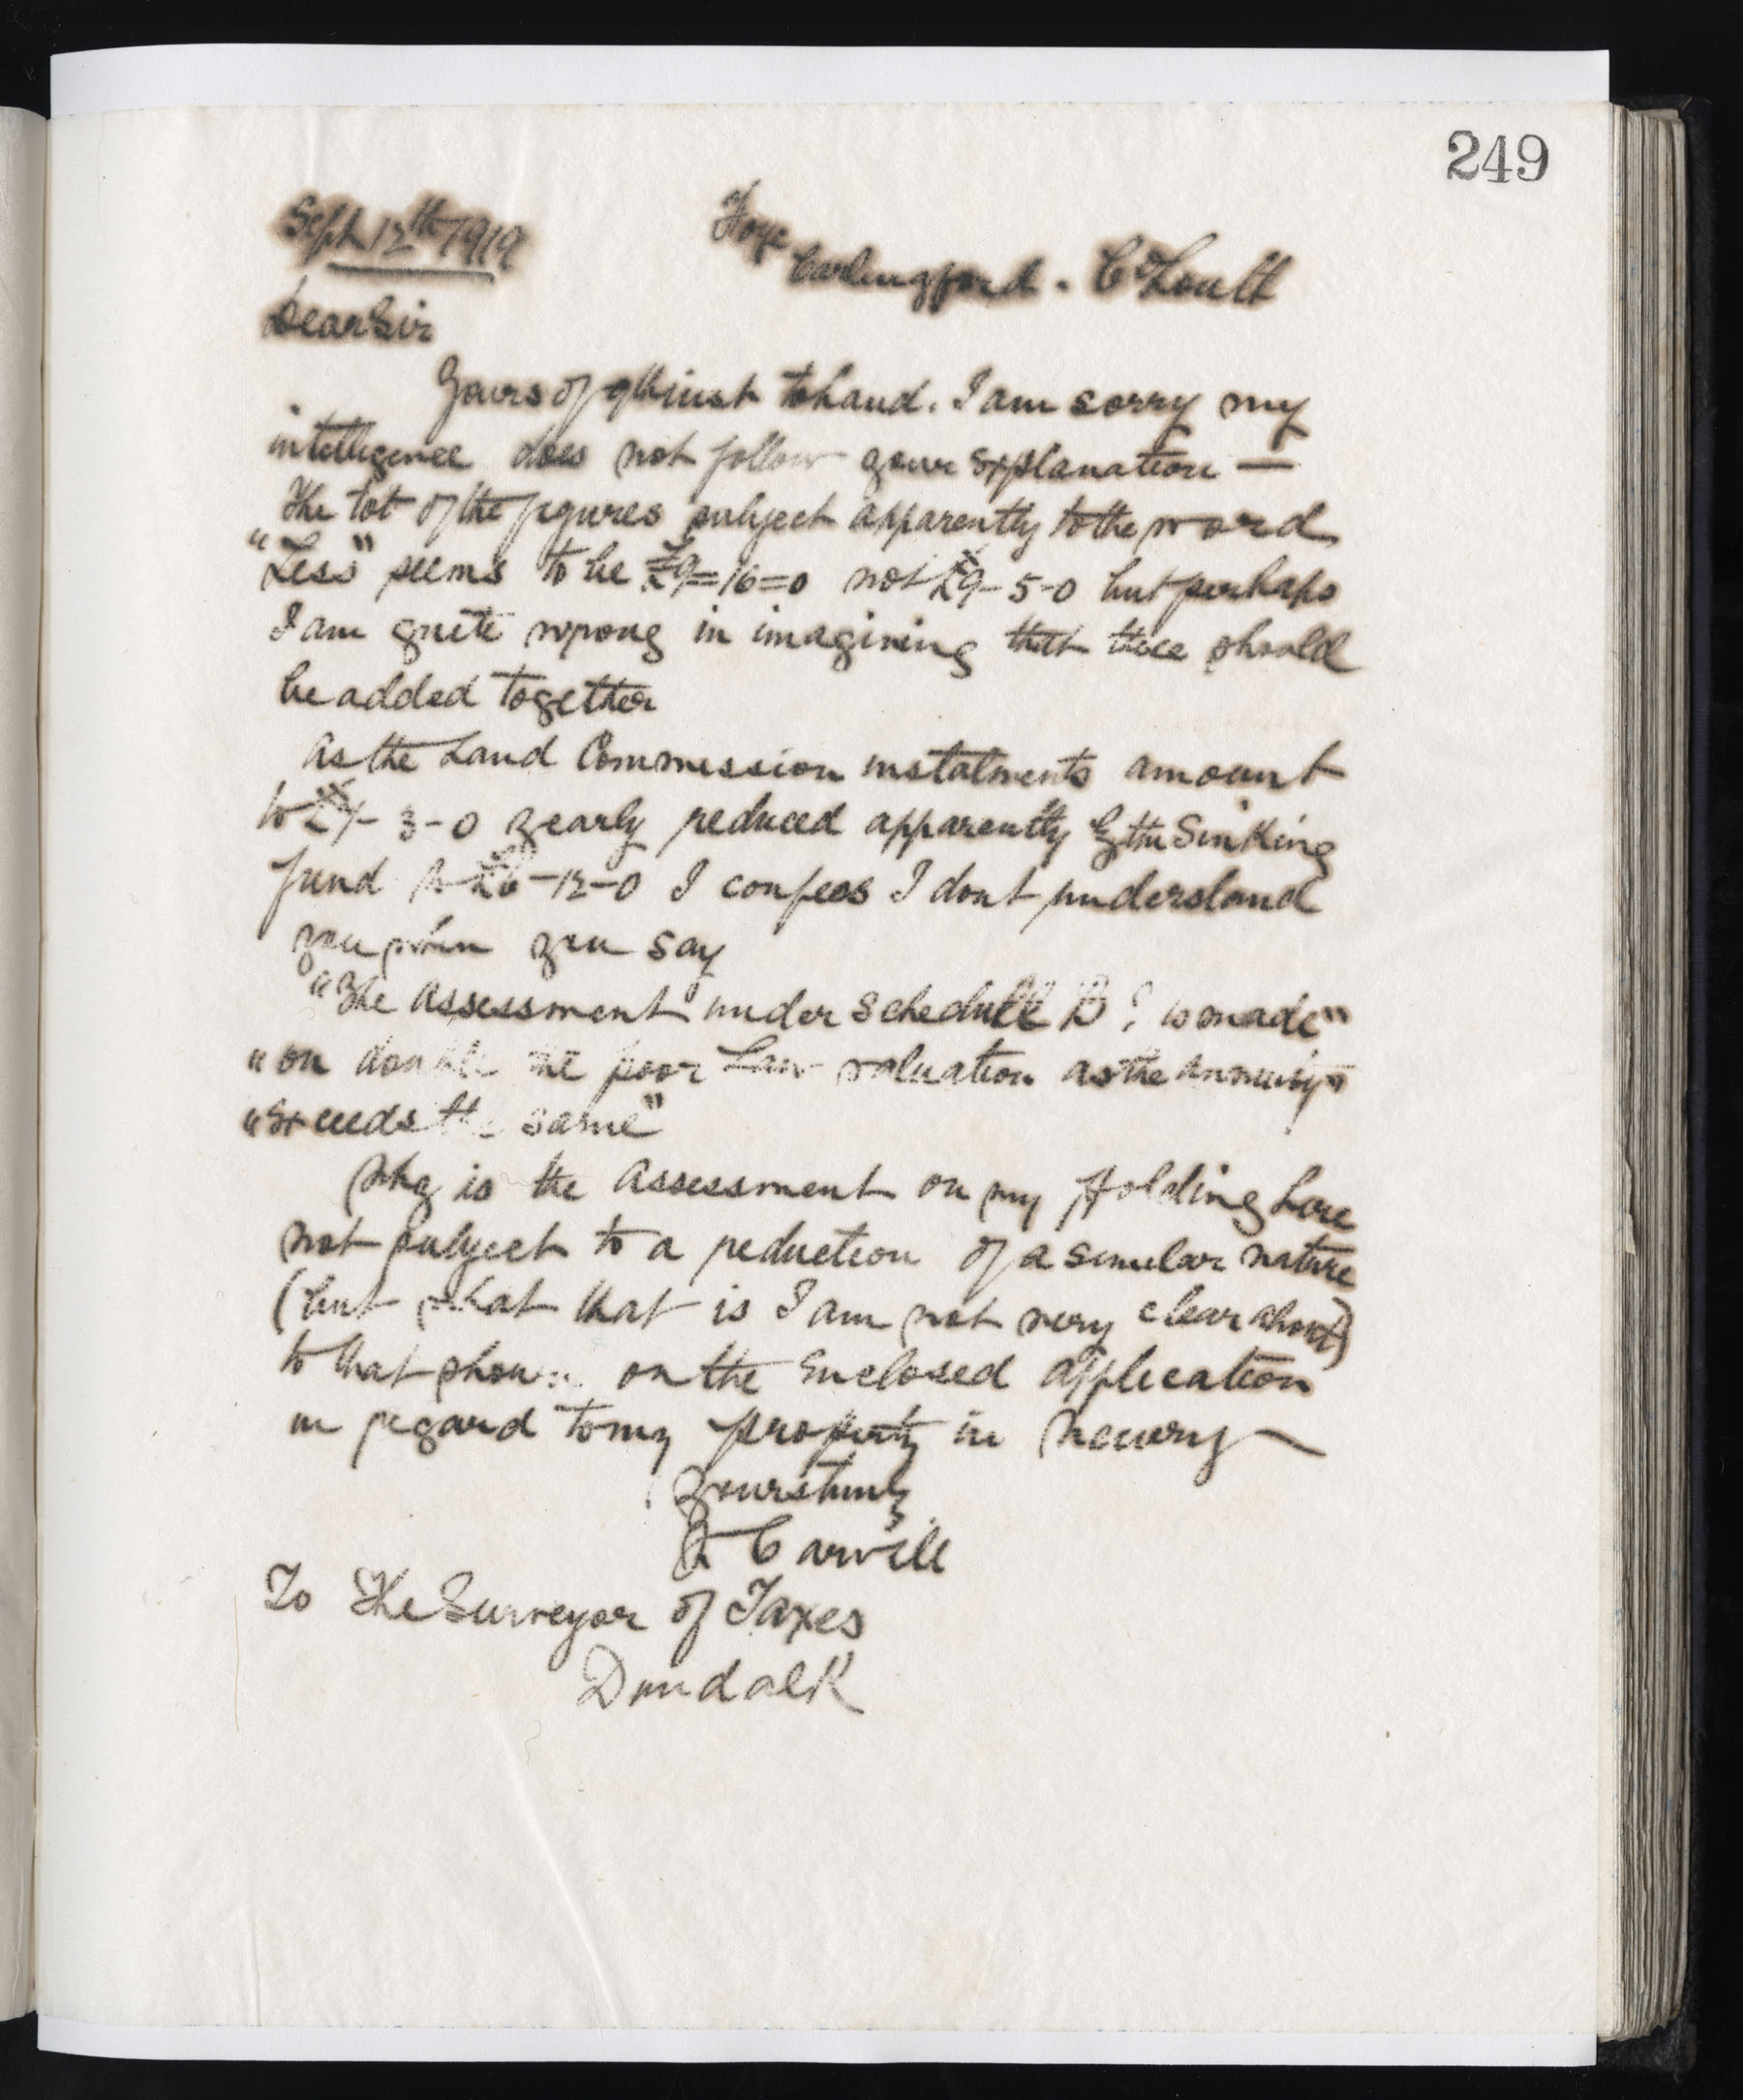 249
Sept 12th 1919
Foye
Carlingford. Co Louth
Dear Sir
Yours of 9th inst to hand. I am sorry my
intelligence does not follow your explanation —
The tot of the figures subject apparently to the word
"Less" seems to be £9=16=0 not £9-5-0 but perhaps
I am quite wrong in imagining that these should
be added together
As the Land Commission instalments amount
to 3-0 yearly reduced apparently by the Sinking
fund to £6-12-0 I confess I dont understand
you when you say
"The Assessment under Schedule B? is made"
"on double the poor Law valuation as the annuity"
"exceeds the same"
Why is the assessment on my Holding here
not subject to a reduction of a similar nature
(but what that is I am not very clear about)
to that shown on the enclosed application
in regard to my property in Newry
Yours truly
Carvill
To The Surveyor of Taxes
Dundalk